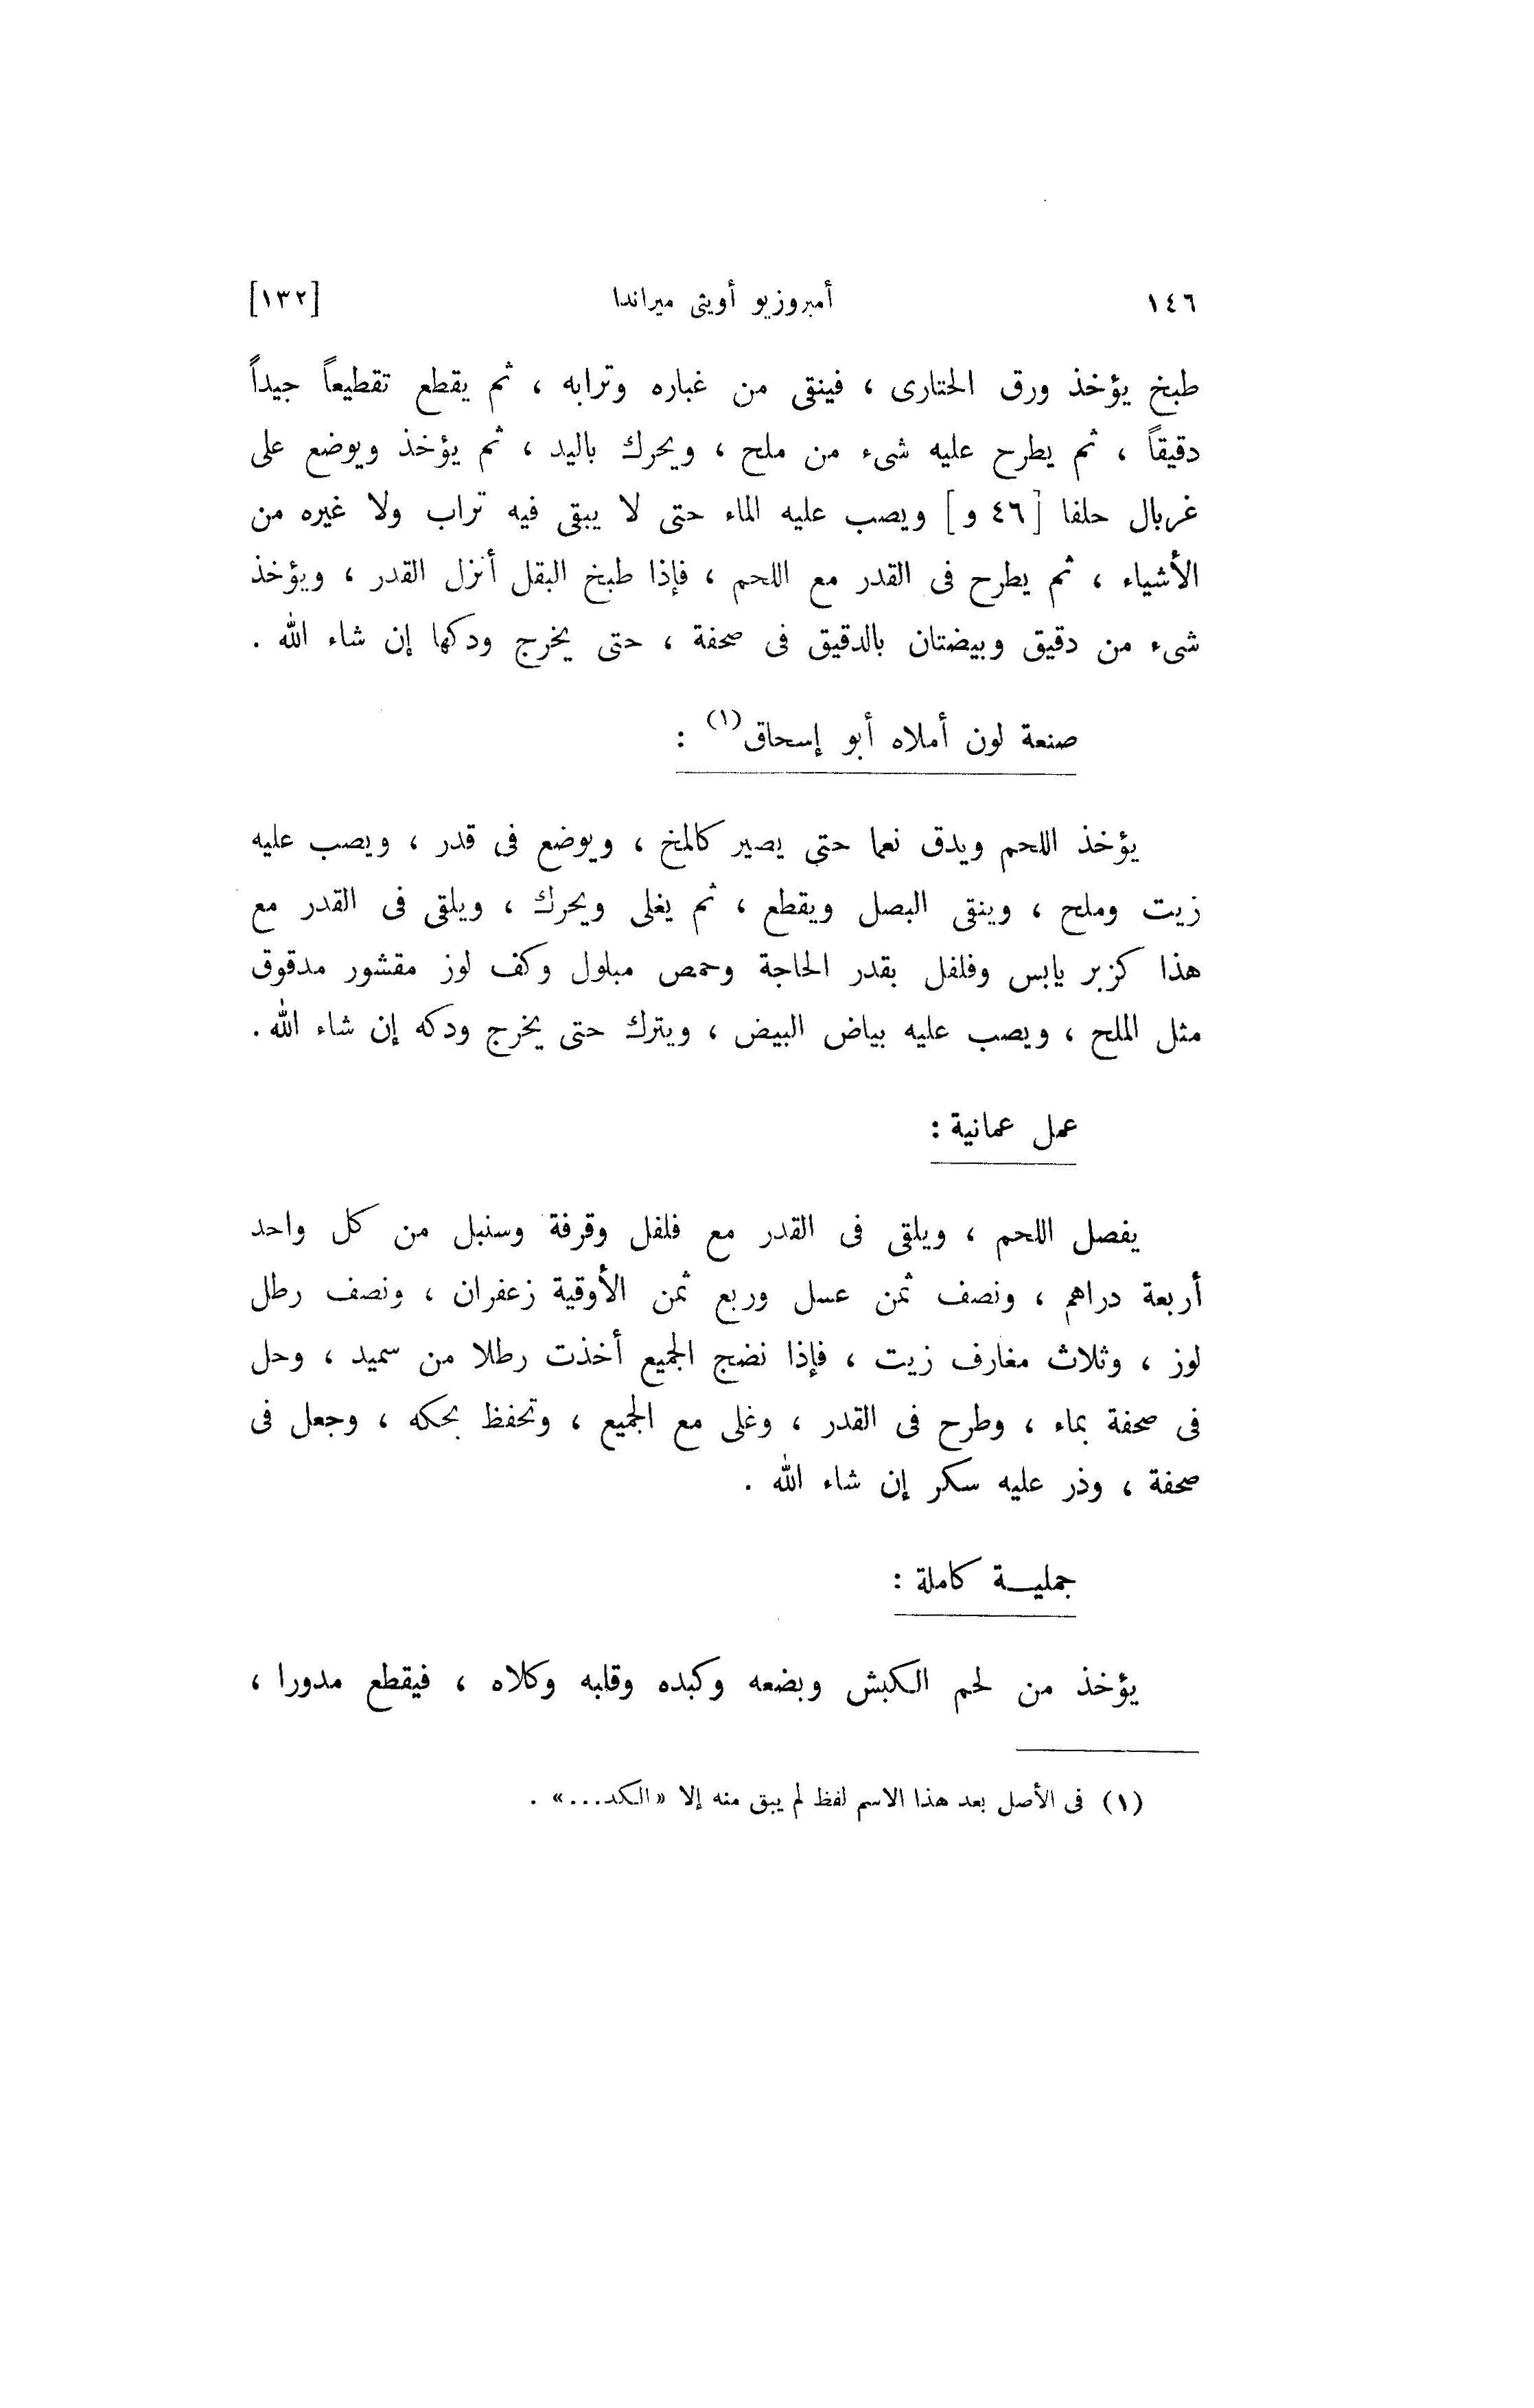 ١٤٦ أمبروزيو أويثى ميراندا [١٣٢]
طبخ يؤخذ ورق الحتارى ، فينقى من غباره وترابه ، ثم يقطع تقطيعاً جيداً
دقيقاً ، ثم يطرح عليه شىء من ملح ، ويحرك باليد ، ثم يؤخذ ويوضع على
غربال حلفا [٤٦ و] ويصب عليه الماء حتى لا يبقى فيه تراب ولا غيره من
الأشياء ، ثم يطرح فى القدر مع اللحم ، فإذا طبخ البقل أنزل القدر ، ويؤخذ
شىء من دقيق وبيضتان بالدقيق فى صحفة ، حتى يخرج ودكها إن شاء الله .
صنعة لون أملاه أبو إسحاق(١) :
يؤخذ اللحم ويدق نعما حتى يصير كالمخ ، ويوضع فى قدر ، ويصب عليه
زيت وملح ، وينقى البصل ويقطع ، ثم يغلى ويحرك ، ويلقى فى القدر مع
هذا كزبر يابس وفلفل بقدر الحاجة وحمص مبلول وكف لوز مقشور مدقوق
مثل الملح ، ويصب عليه بياض البيض ، ويترك حتى يخرج ودكه إن شاء الله.
عمل عمانية :
يفصل اللحم ، ويلقى فى القدر مع فلفل وقرفة وسنبل من كل واحد
أربعة دراهم ، ونصف ثمن عسل وربع ثمن الأوقية زعفران ، ونصف رطل
لوز ، وثلاث مغارف زيت ، فإذا نضج الجميع أخذت رطلا من سميد ، وحل
فى صحفة بماء ، وطرح فى القدر ، وغلى مع الجميع ، وتحفظ بحكه ، وجعل فى
صحفة ، وذر عليه سكر إن شاء الله .
جمليـــة كاملة :
يؤخذ من لحم الكبش وبضعه وكبده وقلبه وكلاه ، فيقطع مدورا ،
(١) فى الأصل بعد هذا الاسم لفظ لم يبق منه إلا «الكد...» .